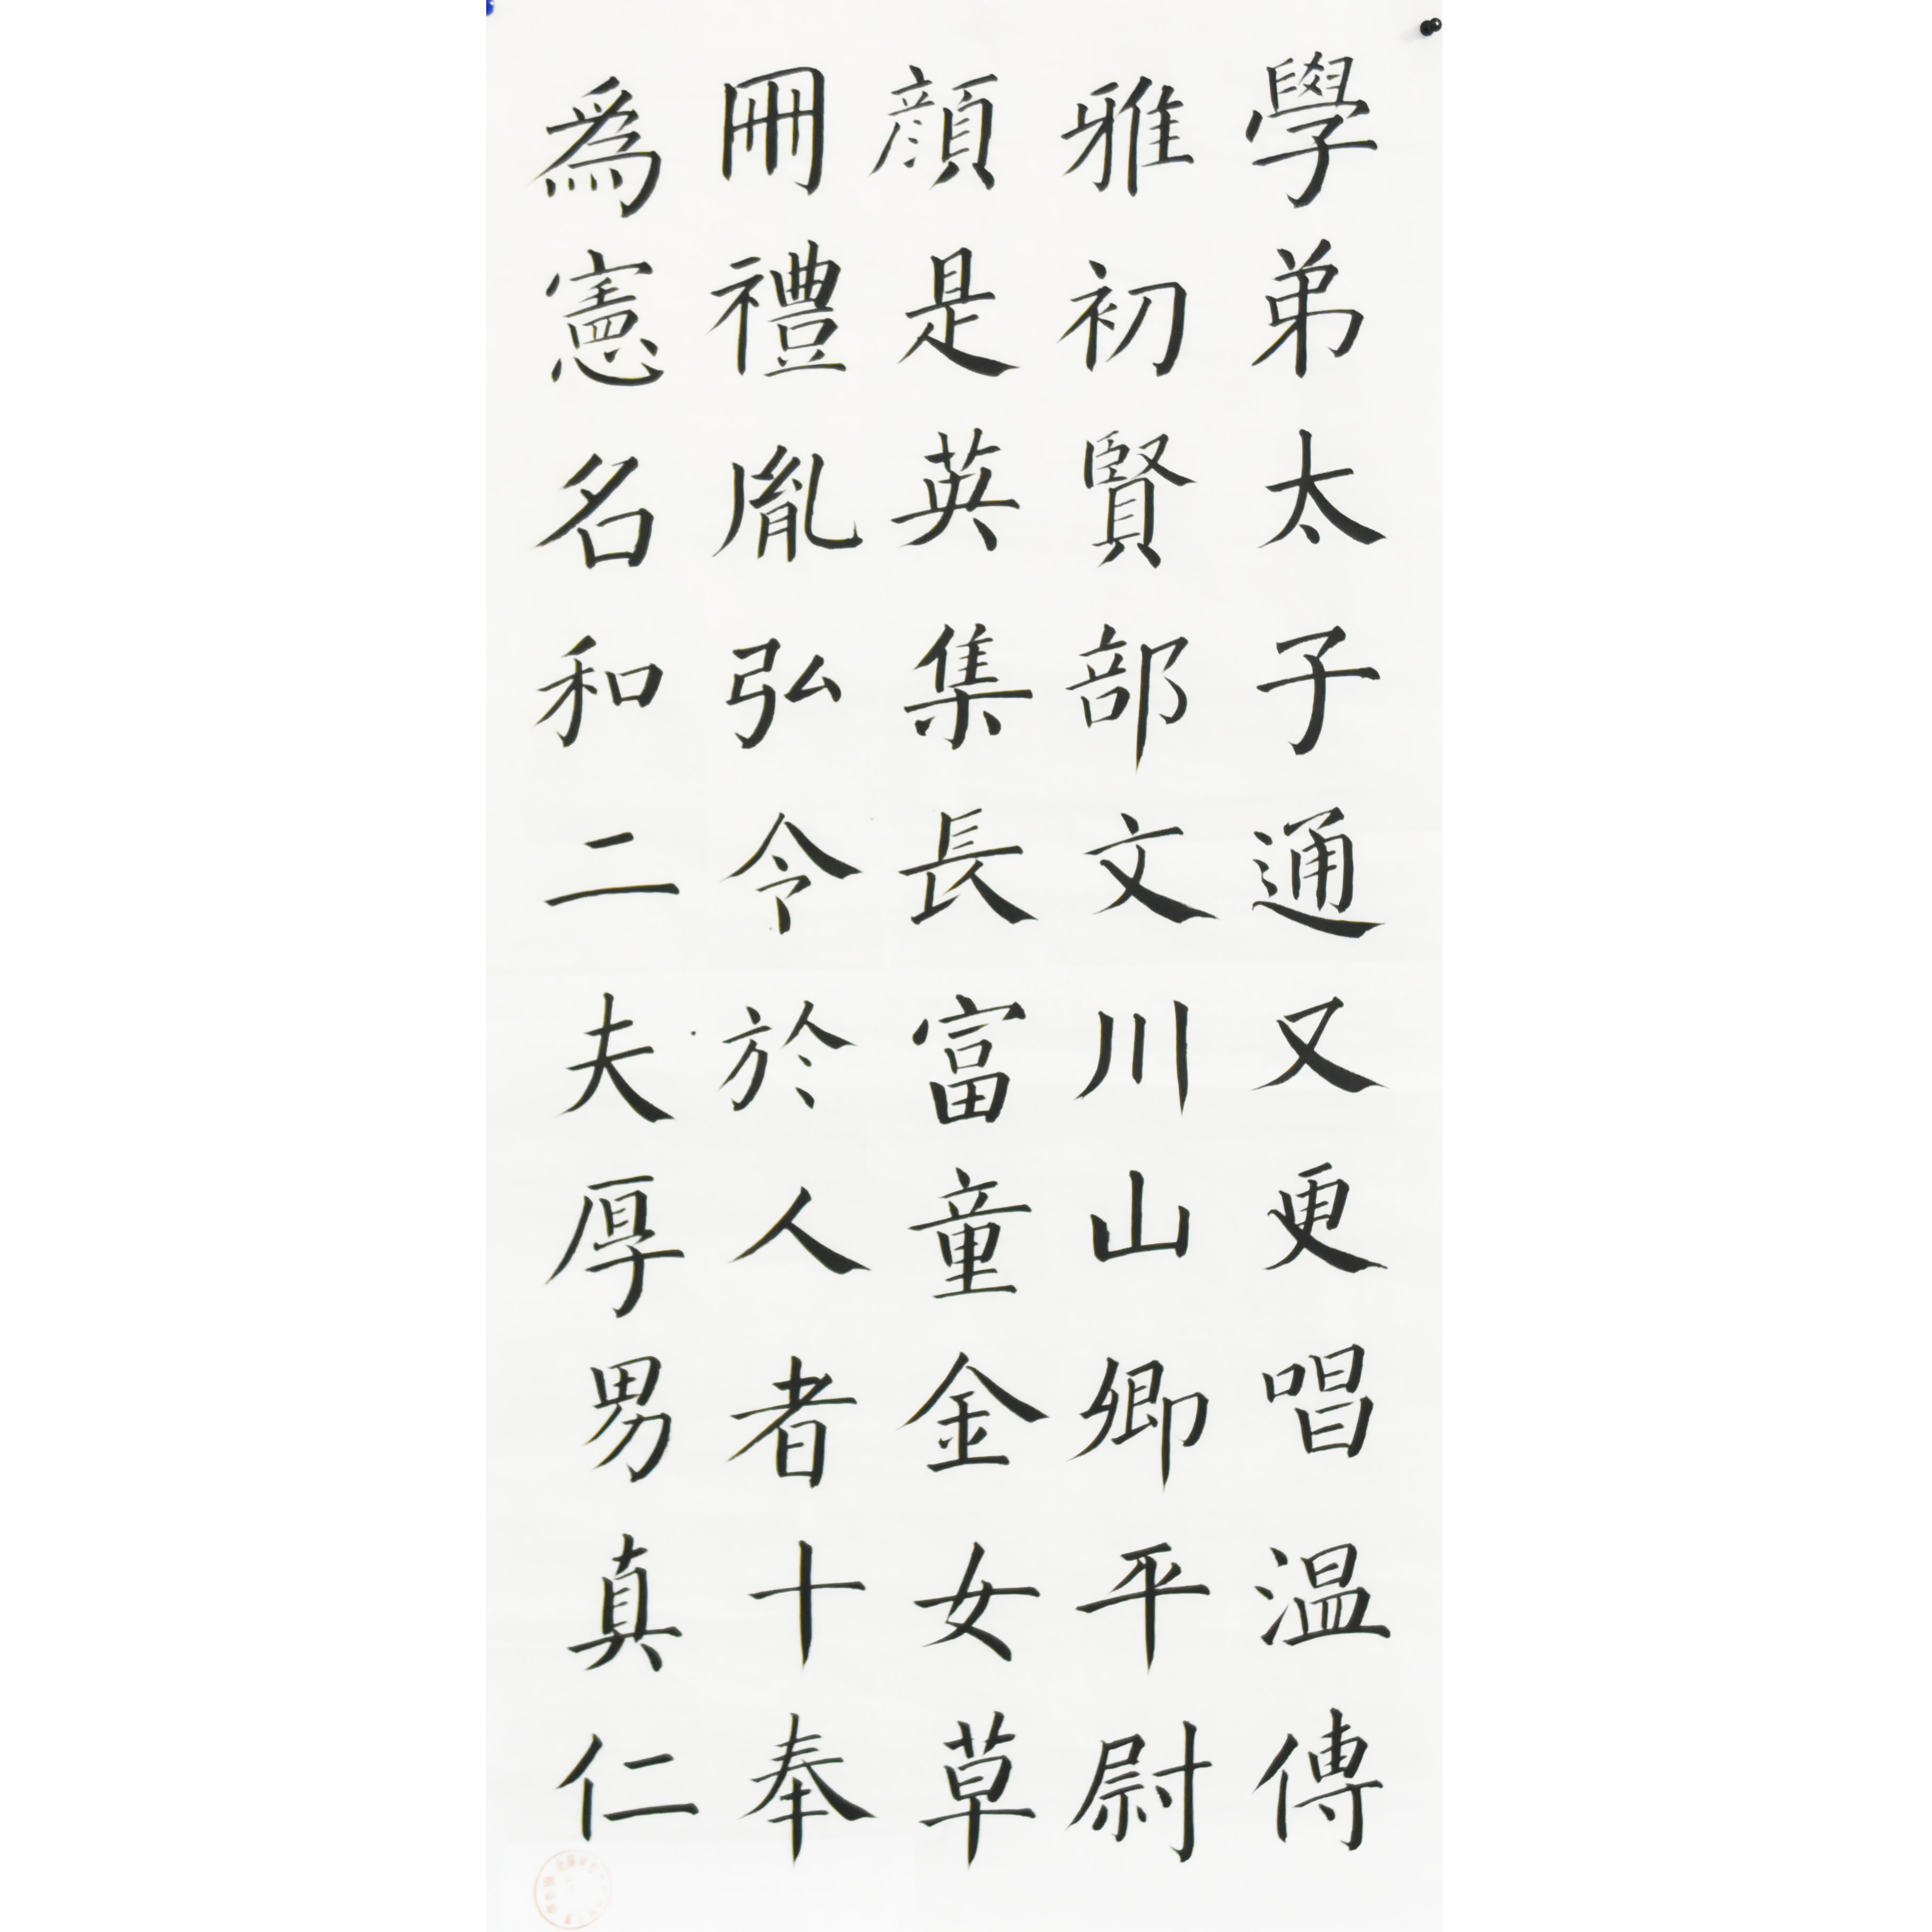 學弟太子通又更唱温傅
雅初賢部文川山卿平尉
顔是英集長富童金女草
冊禮胤弘令於人者十奉
為憲名和二夫厚男真仁